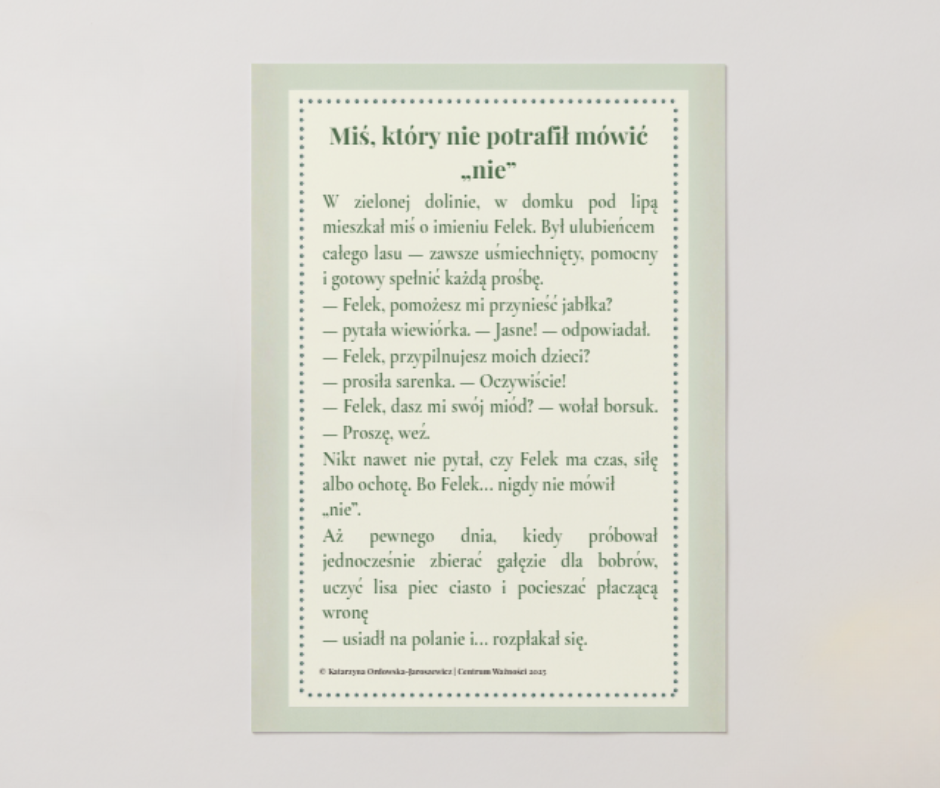 Miś, który nie potrafił mówić
„nie”
W zielonej dolinie, w domku pod lipą
mieszkał miś o imieniu Felek. Był ulubieńcem
całego lasu — zawsze uśmiechnięty, pomocny
i gotowy spełnić każdą prośbę.
— Felek, pomożesz mi przynieść jabłka?
— pytała wiewiórka. — Jasne! — odpowiadał.
— Felek, przypilnujesz moich dzieci?
— prosiła sarenka. — Oczywiście!
— Felek, dasz mi swój miód? — wołał borsuk.
— Proszę, weź.
Nikt nawet nie pytał, czy Felek ma czas, siłę
albo ochotę. Bo Felek... nigdy nie mówił
„nie”.
Aż pewnego dnia, kiedy próbował
jednocześnie zbierać gałęzie dla bobrów,
uczyć lisa piec ciasto i pocieszać płaczącą
wronę
— usiadł na polanie i... rozpłakał się.
© Katarzyna Orłowska-Jaroszewicz | Centrum Ważności 2025